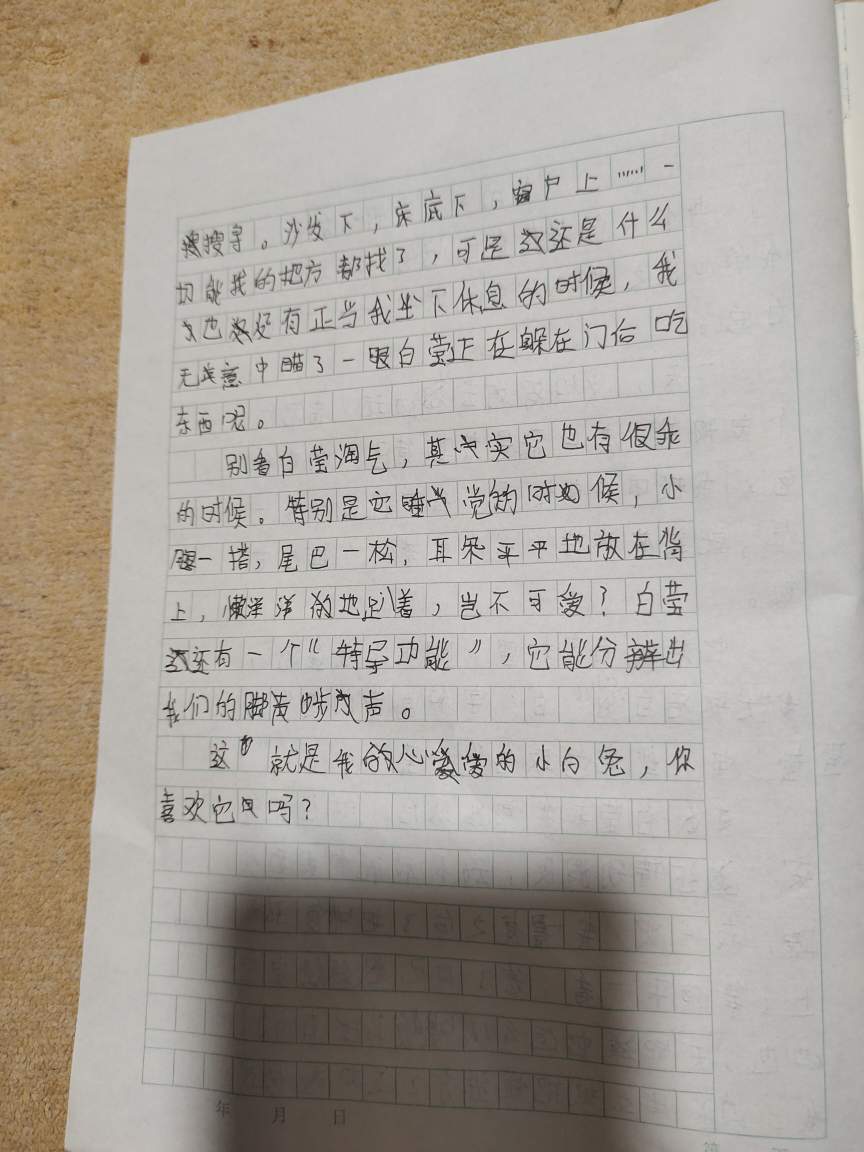 搜寻。沙发下，床底下，窗户上……一
切能找的地方都找了，可是还是什么
也没有正当我坐下休息的时候，我
无意中瞄了一眼白莹正在躲在门后吃
东西呢。
别看白莹淘气，其实它也有很乖
的时候。特别是它睡觉的时候，小
腿一搭，尾巴一松，耳朵平平地放在背
上，懒洋洋的地趴着，岂不可爱？白莹
还有一个“特异功能”，它能分辨出
我们的脚步声。
这就是我的心爱的小白兔，你
喜欢它吗？
年 月 日